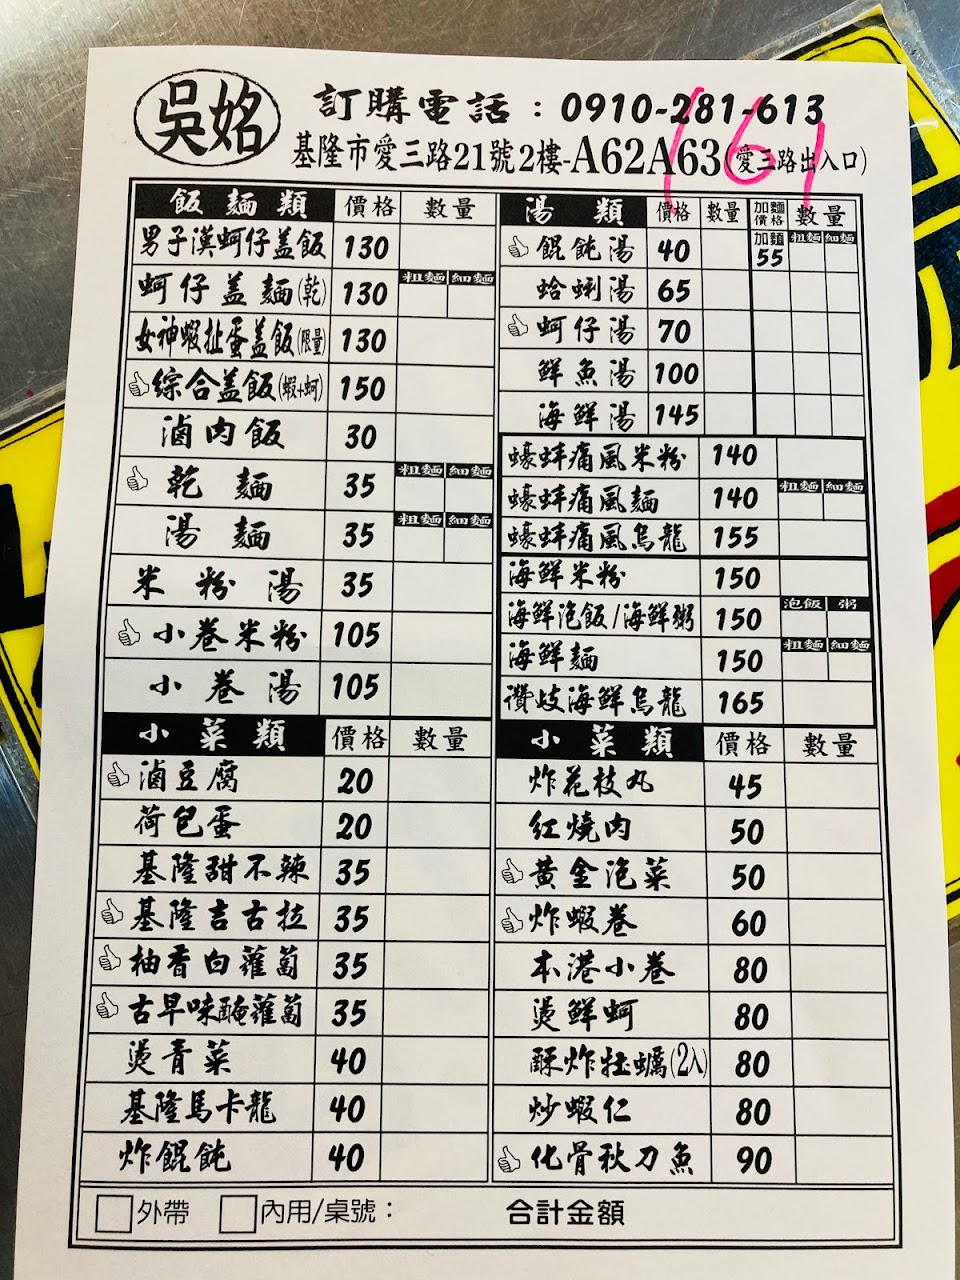 吳姳
訂購電話：0910-281-613
基隆市愛三路21號2樓-A62A63(愛三路出入口)
161
飯麵類 價格 數量
男子漢蚵仔盖飯 130
蚵仔盖麵(乾) 130 粗麵 細麵
女神蝦扯蛋盖飯(限量) 130
綜合盖飯(蝦+蚵) 150
滷肉飯 30
乾麵 35 粗麵 細麵
湯麵 35 粗麵 細麵
米粉湯 35
小卷米粉 105
小卷湯 105
湯類 價格 數量 加麵價格 數量
餛飩湯 40 加麵 55 粗麵 細麵
蛤蜊湯 65
蚵仔湯 70
鮮魚湯 100
海鮮湯 145
蠔蚌痛風米粉 140
蠔蚌痛風麵 140 粗麵 細麵
蠔蚌痛風烏龍 155
海鮮米粉 150
海鮮泡飯/海鮮粥 150 泡飯 粥
海鮮麵 150 粗麵 細麵
讚岐海鮮烏龍 165
小菜類 價格 數量
滷豆腐 20
荷包蛋 20
基隆甜不辣 35
基隆吉古拉 35
柚香白蘿蔔 35
古早味醃蘿蔔 35
燙青菜 40
基隆馬卡龍 40
炸餛飩 40
小菜類 價格 數量
炸花枝丸 45
紅燒肉 50
黃金泡菜 50
炸蝦卷 60
本港小卷 80
燙鮮蚵 80
酥炸牡蠣(2入) 80
炒蝦仁 80
化骨秋刀魚 90
外帶 內用/桌號： 合計金額